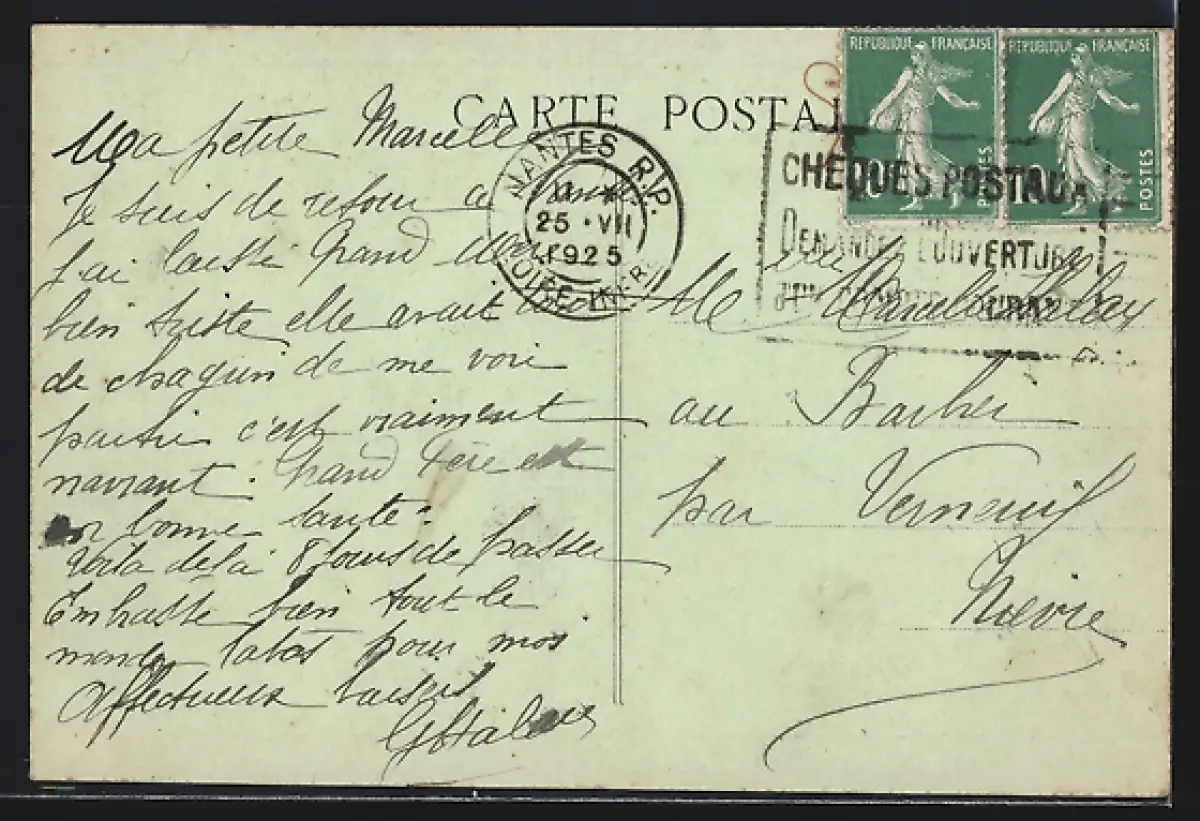 CARTE POSTAL
REPUBLIQUE FRANÇAISE
POSTES
REPUBLIQUE FRANÇAISE
POSTES
NANTES R.P.
25 · VII
1925
LOIRE INFRE
CHEQUES POSTAUX
DEMANDEZ L'OUVERTURE
d'un COMPTE COURANT
Ma petite Marcelle
Je suis de retour a
j'ai laissé Grand
bien triste elle avait
de chagrin de me voir
partir c'est vraiment
navrant. Grand Père est
en bonne santé.
Voila deja 8 jours de passer
Embrasse bien tout le
monde pour moi
Affectueux baisers
Melle Marcelle
au Barbier
par Verneuil
Nievre